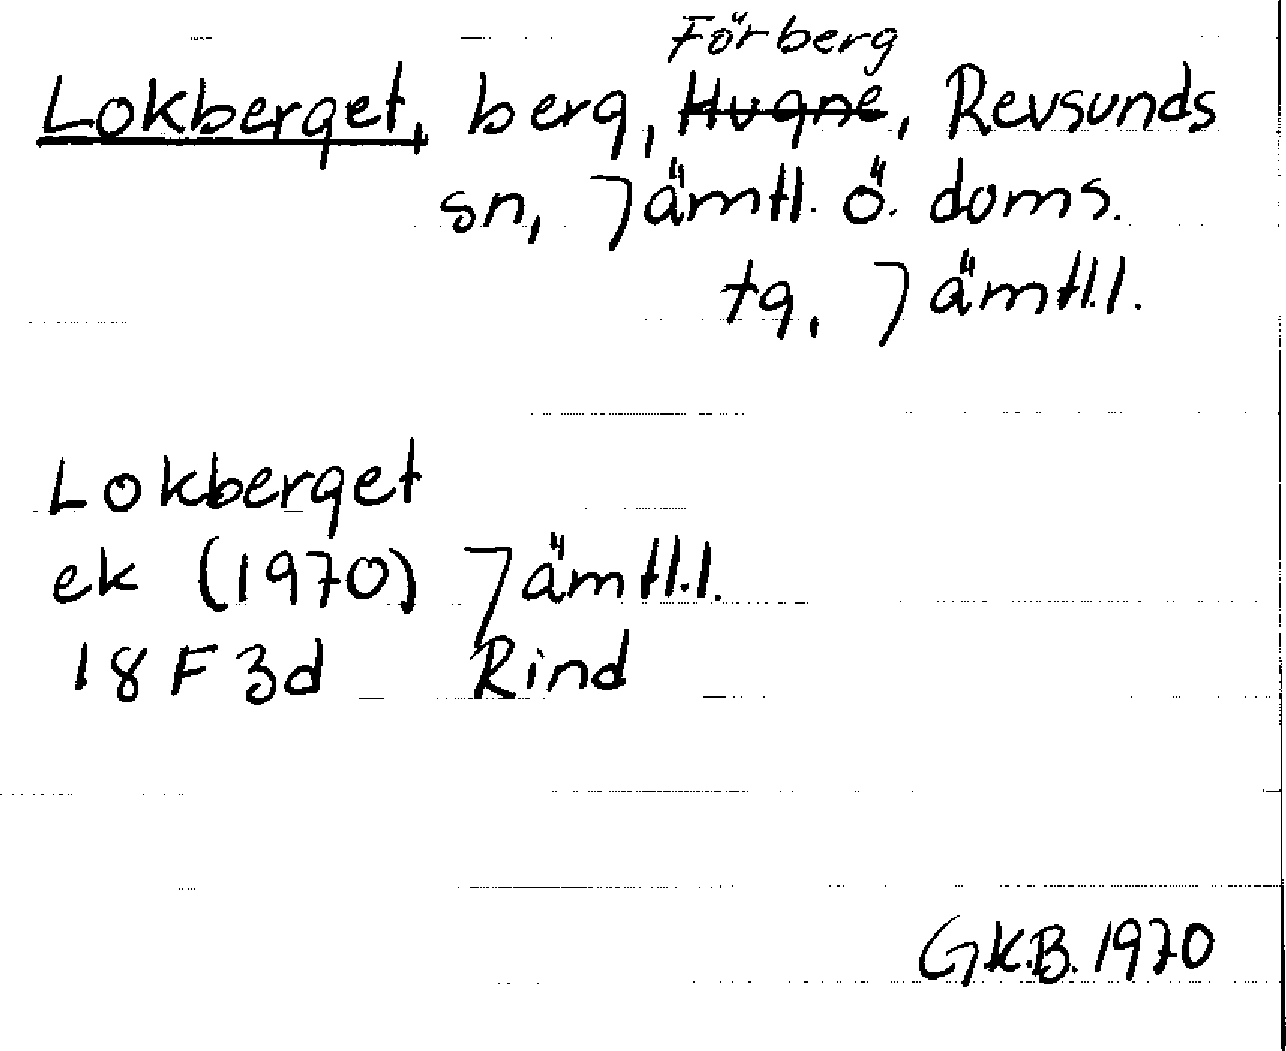 Förberg
Lokberget, berg, Hugne, Revsunds
sn, Jämtl. ö. doms.
tg, Jämtl.l.
Lokberget
ek (1970) Jämtl.l.
18F3d Rind
GKB. 1970